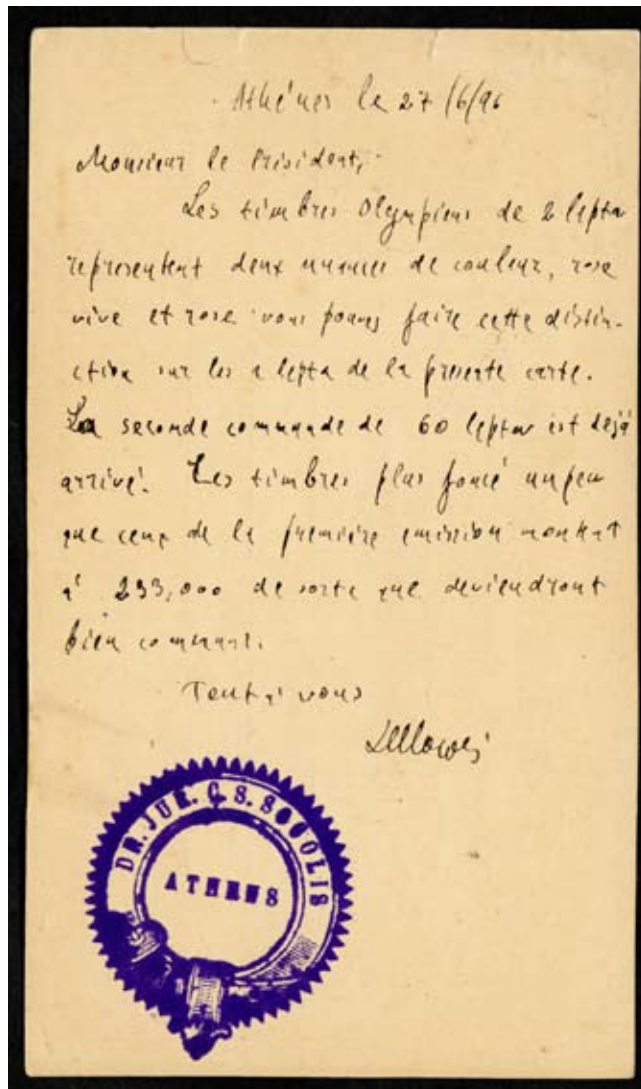 Athénes le 27/6/96
Monsieur le Président,
Les timbres Olympiens de 2 lepta
representent deux nuances de couleur, rose
vive et rose vous pouvez faire cette distin-
ction sur les 2 lepta de la presente carte.
La seconde commande de 60 lepta est dejá
arrivé. Les timbres plus foncé un peu
que ceux de la première emission montent
a' 233,000 de sorte que deviendront
bien commans.
Tout a' vous
DR. JUR. C. S. SOCOLIS
ATHENS